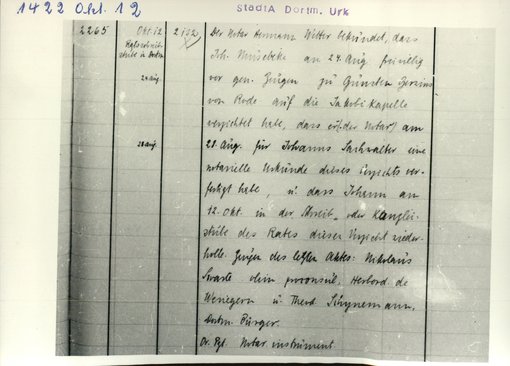 1422 Okt. 12
StadtA Dortm. Urk
2265
Okt. 12
2102
Der Notar Hermann Witter bekundet, dass
Ratsschreib-
stube in Dortm.
Joh. Musebeke am 24. Aug. freiwillig
24 Aug.
vor gen. Zeugen zu Gunsten
von Rode auf die Jakobikapelle
verzichtet habe, dass er (der Notar) am
28 Aug.
28. Aug. für Johanns Sachwalter eine
notarielle Urkunde dieses Verzichts ver-
fertigt habe, u. dass Johann am
12. Okt. in der Schreib- oder Kanzlei-
stube des Rates diesen Verzicht wieder-
holte. Zeugen des letzten Aktes: Nikolaus
Swarte olim proconsul, Herbord de
u. Theod.
Dortm. Bürger.
Or. Pgt. Notar. instrument.